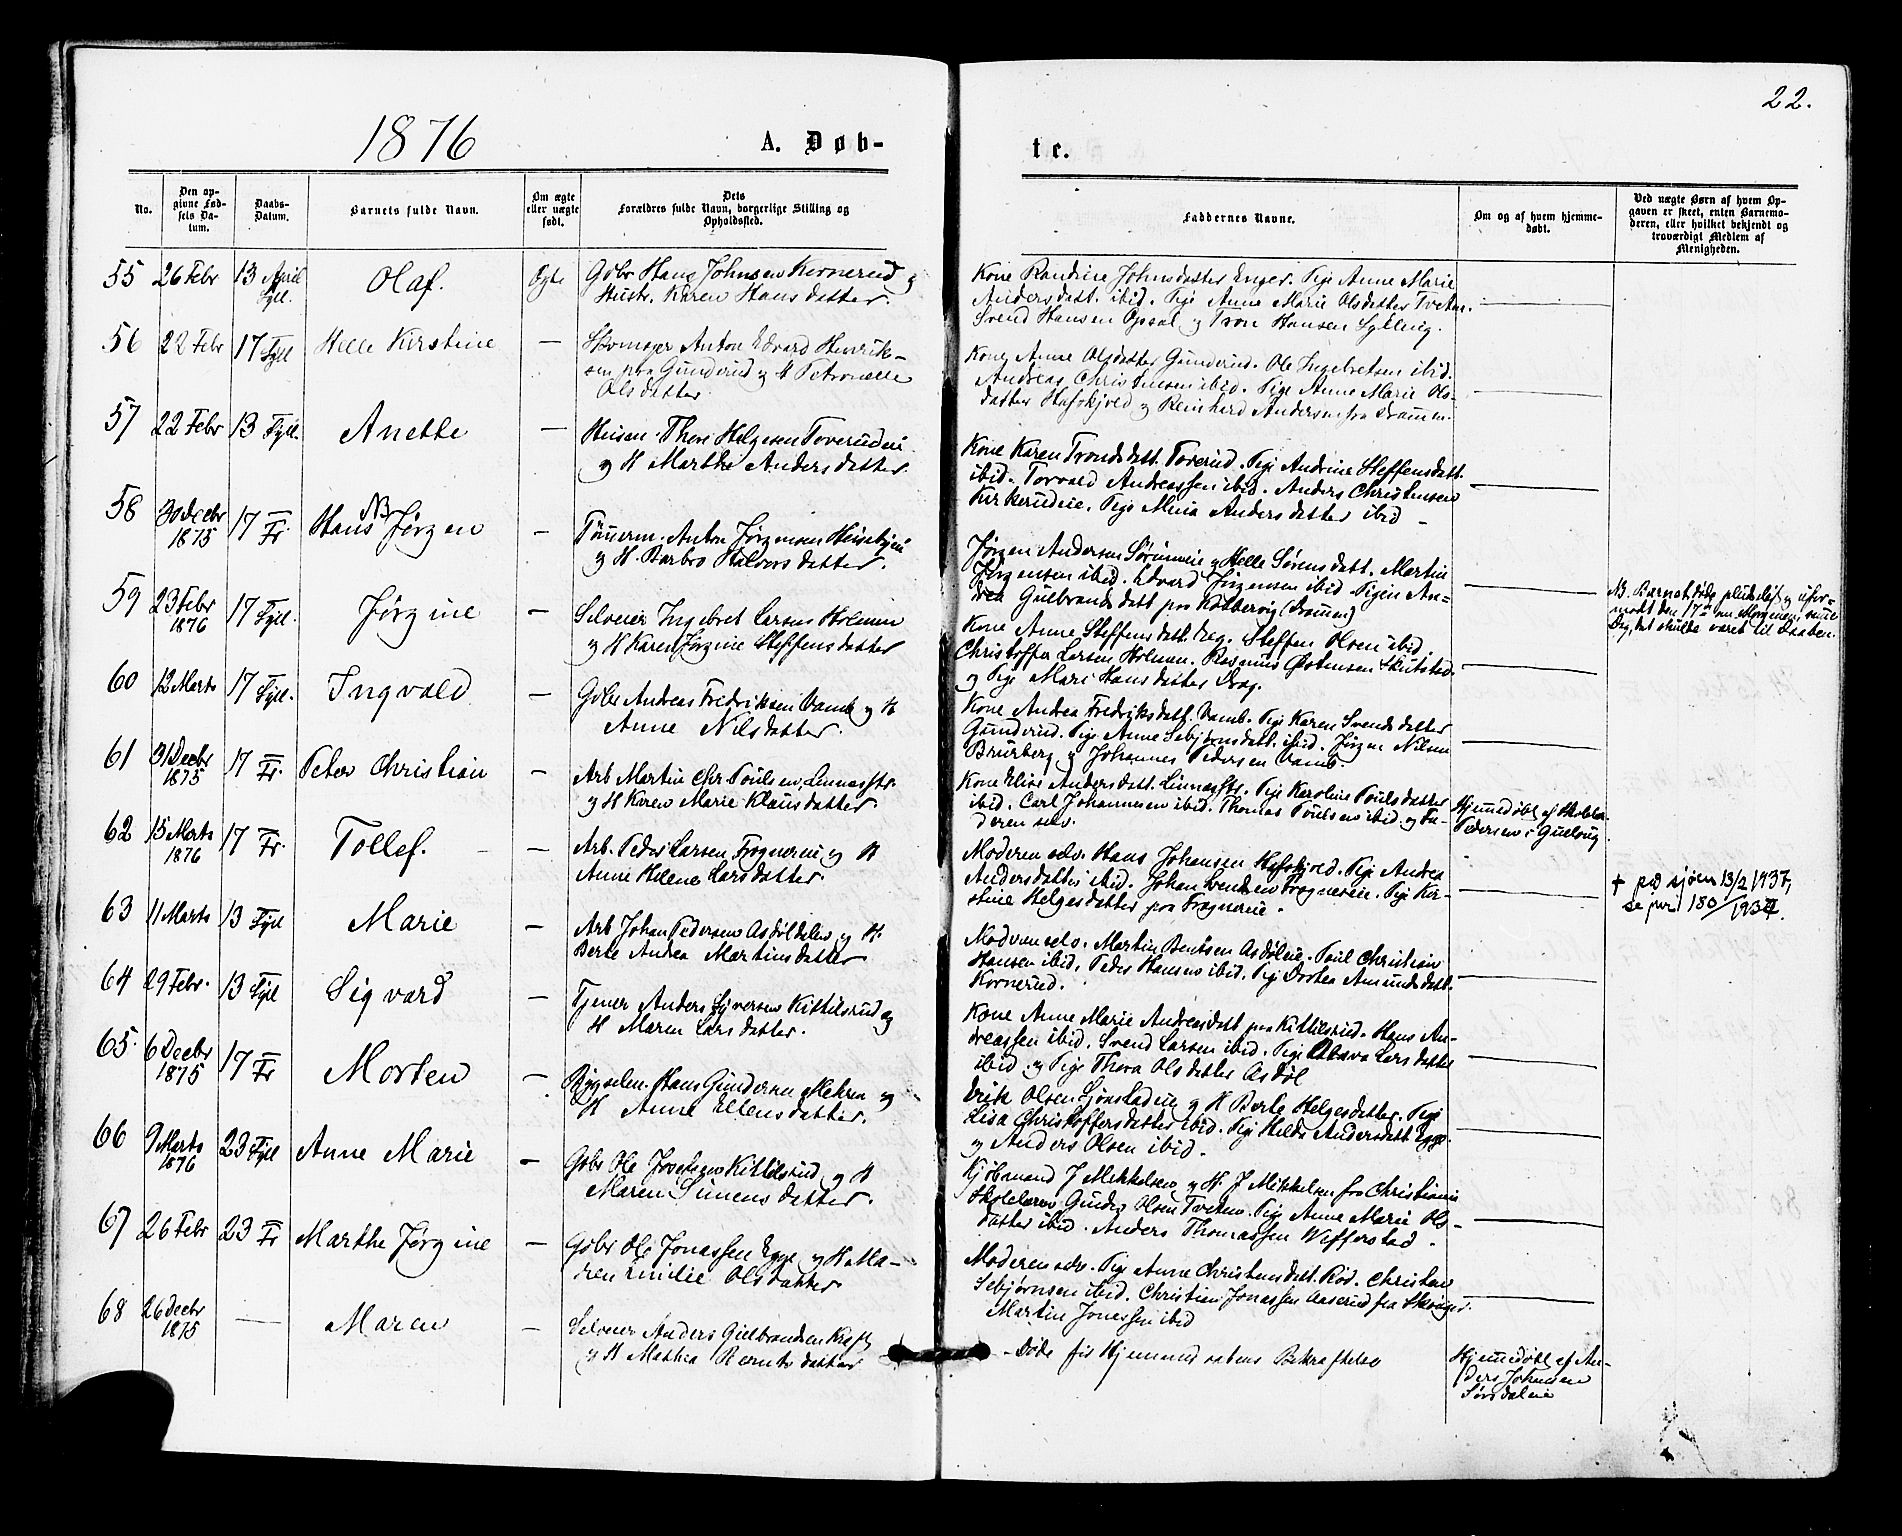 22.
1876
A. Døb-
te.
No.
Den op-
givne Fød-
sels Da-
tum.
Daabs-
Datum.
Barnets fulde Navn.
Om ægte
eller uægte
født.
Dets
Forældres fulde Navn, borgerlige Stilling og
Opholdssted.
Faddernes Navne.
Om og af hvem hjemme-
døbt.
Ved uægte Børn af hvem Op-
gaven er skeet, enten Barnemo-
deren, eller hvilket bekjendt og
troværdigt Medlem af
Menigheden.
55 26 Febr 13 April Syll. Olaf. Ægte
Gbr Hans Johnsen Kornerud og
Hustr. Karen Hansdatter.
Kone Randine Johnsdatter Enger. Pige Anne Marie
Andersdatt. ibid. Pige Anne Marie Olsdatter Tveten.
Svend Hansen Opsal og Tron Hansen Sylling.
56 22 Febr 17 Syll Helle Kirstine —
Skomager Anton Edvard Henrik-
sen paa Gunderud og H Petronelle
Olsdatter.
Kone Anne Olsdatter Gunderud. Ole Ingebretsen ibid.
Andreas Christensen ibid. Pige Anne Marie Ols-
datter Hafskjold og Reinhard Andersen fra Dramm.
57 22 Febr 13 Syll. Anette —
Husm. Thore Helgesen Toverudeie
og H Marthe Andersdatter.
Kone Karen Trondsdatt. Toverud. Pige Andrine Steffensdatt.
ibid. Torvald Andreassen ibid. Anders Christensen
Kirkerudeie. Pige Mina Andersdatter ibid -
58 30 Decbr 1875 17 Fr. NB Hans Jørgen —
Tømmerm. Anton Jørgensen Huseby
og H. Barbro Halvorsdatter.
Jørgen Andersen Sørumeie og Helle Sørensdatt. Martin
Jørgensen ibid. Edvard Jørgensen ibid Pigen An-
drea Gulbrandsdatt paa (Drammen)
59 23 Febr 1876 17 Syll. Jørgine —
Selveier Ingebret Larsen Holmen
og H Karen Jørgine Steffensdatter
Kone Anne Steffensdatt. Drag. Steffen Olsen ibid.
Christoffer Larsen Holmen. Rasmus Østensen Skutstad.
og Pige Mari Hansdatter Drag.
NB. Barnet døde pludselig og ufor-
modt den 17de om Morgenen, samme
Dag, det skulde været til Daaben.
60 12 Marts 17 Syll. Ingvald —
Gbr Andreas Fredriksen Vamb og H
Anne Nilsdatter.
Kone Andrea Fredriksdatt. Vamb. Pige Karen Svendsdatter
Gunderud. Pige Anne Sebjørnsdatt. ibid. Jørgen Nilsen
Brurberg og Johannes Pedersen Vamb.
61 31 Decbr 1875 17 Fr. Peter Christian —
Arb Martin Chr. Poulsen, Linnæsstr.
og H Karen Marie Klausdatter
Kone Elise Andersdatt. Linnæsstr. Pige Karoline Poulsdatter
ibid. Carl Johannesen ibid. Thomas Poulsen ibid. og Fa-
deren selv.
Hjemmedøbt af Skolelær.
Pedersen i Gullaug
62 15 Marts 1876 17 Fr. Tollef. —
Arb. Peder Larsen Frognereie og H
Anne Helene Larsdatter.
Moderen selv. Hans Johansen Hafskjold. Pige Andrea
Andersdatter ibid. Johan Svendsen Frognereie. Pige Kir-
stine Helgesdatter paa Frognereie.
+ på sjøen 13/2 1937,
se pvr. 180/1937.
63 11 Marts 13 Syll Marie —
Arb Johan Pedersen Asdøldalen og H.
Berte Andrea Martinsdatter
Moderen selv. Martin Bentsen Asdøleie. Poul Christian
Hansen ibid. Peder Hansen ibid. Pige Dortea Amundsdatt.
Kornerud.
64 29 Febr. 13 Syll Sigvard —
Tjener Anders Syversen Kittilsrud og
H Maren Larsdatter.
Kone Anne Marie Andreasdatt paa Kittilsrud. Hans An-
dreassen ibid. Svend Larsen ibid. Pige Larsdatter
ibid. og Pige Thora Olsdatter Asdøl
65. 6 Decbr 1875 17 Fr Morten —
Bygselm. Hans Gundersen Mehren og
H Anne Ellensdatter.
Erik Olsen Sjøstadeie og H Berte Helgesdatter. Pige
Lisa Christoffersdatter ibid. Pige Hilda Andersdatt Egge.
og Anders Olsen ibid.
66 9 Marts 1876 23 Syll Anne Marie —
Gbr Ole Josefsen Kittilsrud og H
Maren Simensdatter.
Kjøbmand J Mikkelsen og H. J Mikkelsen fra Christiania
Skolelærer Gunder Olsen Tveten. Pige Anne Marie Ols-
datter ibid. Anders Thomassen Wefferstad.
67 26 Febr 23 Fr Marthe Jørgine —
Gbr Ole Jonassen Egge og H Ma-
ren Emilie Olsdatter
Moderen selv. Pige Anne Christensdatt. Rød. Christen
Sebjørnsen ibid. Christian Jonassen Aaserud fra Skoger.
Martin Jonassen ibid
68 26 Decbr 1875 — Maren —
Selveier Anders Gulbrandsen Kraft
og H Mathea Berntsdatter
- Døde før Hjemmedaabens Bekræftelse
Hjemmedøbt af An-
ders Johansen
Sørsdaleie